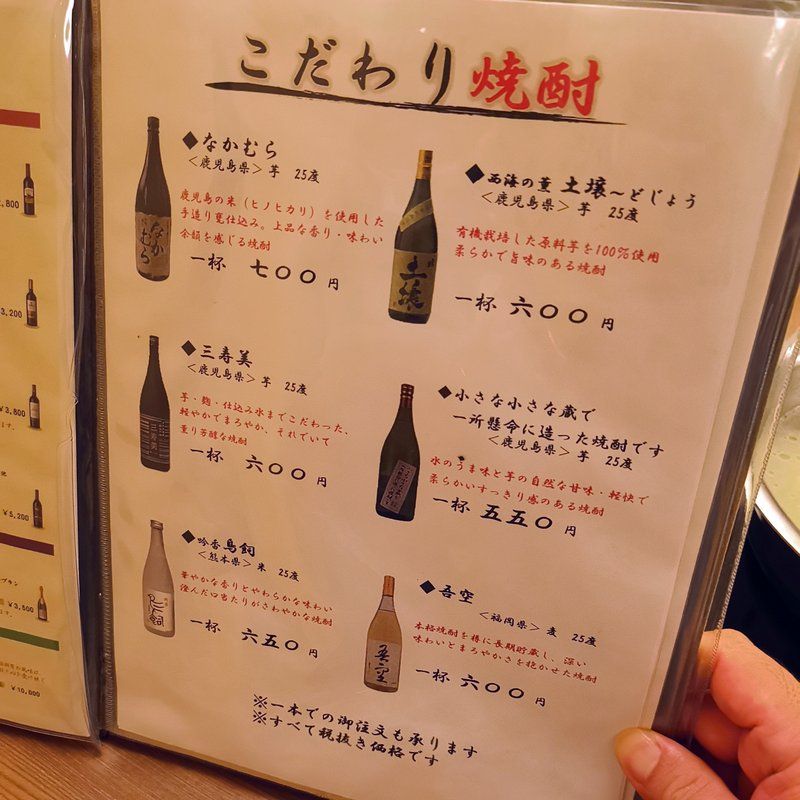 こだわり焼酎
◆なかむら
＜鹿児島県＞ 芋 25度
鹿児島の米（ヒノヒカリ）を使用した
手造り甕仕込み。上品な香り・味わい
余韻を感じる焼酎
一杯 七〇〇 円
◆西海の薫 土壌～どじょう
＜鹿児島県＞ 芋 25度
有機栽培した原料芋を100%使用
柔らかで旨味のある焼酎
一杯 六〇〇 円
◆三寿美
＜鹿児島県＞ 芋 25度
芋・麹・仕込み水までこだわった、
軽やかでまろやか、それでいて
薫り芳醇な焼酎
一杯 六〇〇 円
◆小さな小さな蔵で
一所懸命に造った焼酎です
＜鹿児島県＞ 芋 25度
水のうま味と芋の自然な甘味・軽快で
柔らかいすっきり感のある焼酎
一杯 五五〇 円
◆吟香鳥飼
＜熊本県＞ 米 25度
華やかな香りとやわらかな味わい
澄んだ口当たりがさわやかな焼酎
一杯 六五〇 円
◆吾空
＜福岡県＞ 麦 25度
本格焼酎を樽に長期貯蔵し、深い
味わいとまろやかさを抱かせた焼酎
一杯 六〇〇 円
※一本での御注文も承ります
※すべて税抜き価格です
なかむら
土壌
吾空
,800
3,200
¥3,800
¥5,200
¥3,500
¥10,000